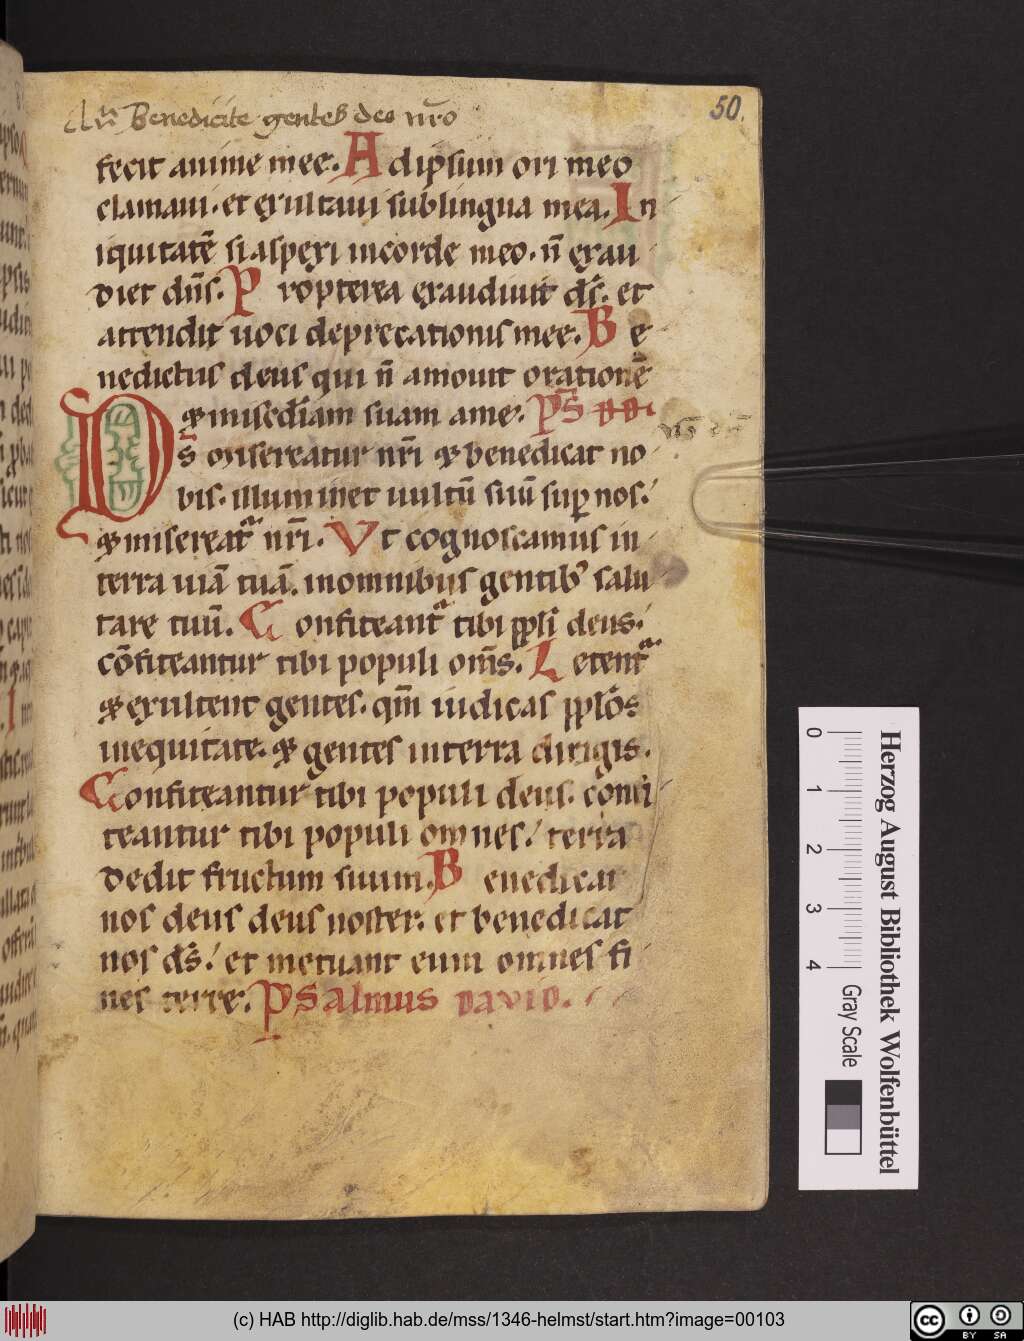 50.
Benedicite gentes deo nr̄o
fecit anime mee. Ad ipsum ori meo
clamaui. et exultaui sub lingua mea. In
iquitatē si aspexi in corde meo. n̄ exau
diet dn̄s. Propterea exaudiuit ds̄. et
attendit uoci deprecationis mee. Be
nedictus deus qui n̄ amouit orationē
& misedīam suam a me. Ps̄ dd.
Ds̄ misereatur nr̄i & benedicat no
bis. illuminet uultū suū sup nos.
& misereat nr̄i. Vt cognoscamus in
terra uiā tuā. in omnibus gentib salu
tare tuū. Confiteant tibi ppli deus.
cōfiteantur tibi populi oms̄. Letent
& exultent gentes. qm̄ iudicas pplōs
in equitate. & gentes in terra dirigis.
Confiteantur tibi populi deus. confi
teantur tibi populi omnes. terra
dedit fructum suum. Benedicat
nos deus deus noster. et benedicat
nos ds̄. et metuant eum omnes fi
nes terre. Psalmus david.
Herzog August Bibliothek Wolfenbüttel
0 1 2 3 4
Gray Scale
(c) HAB http://diglib.hab.de/mss/1346-helmst/start.htm?image=00103
cc BY SA